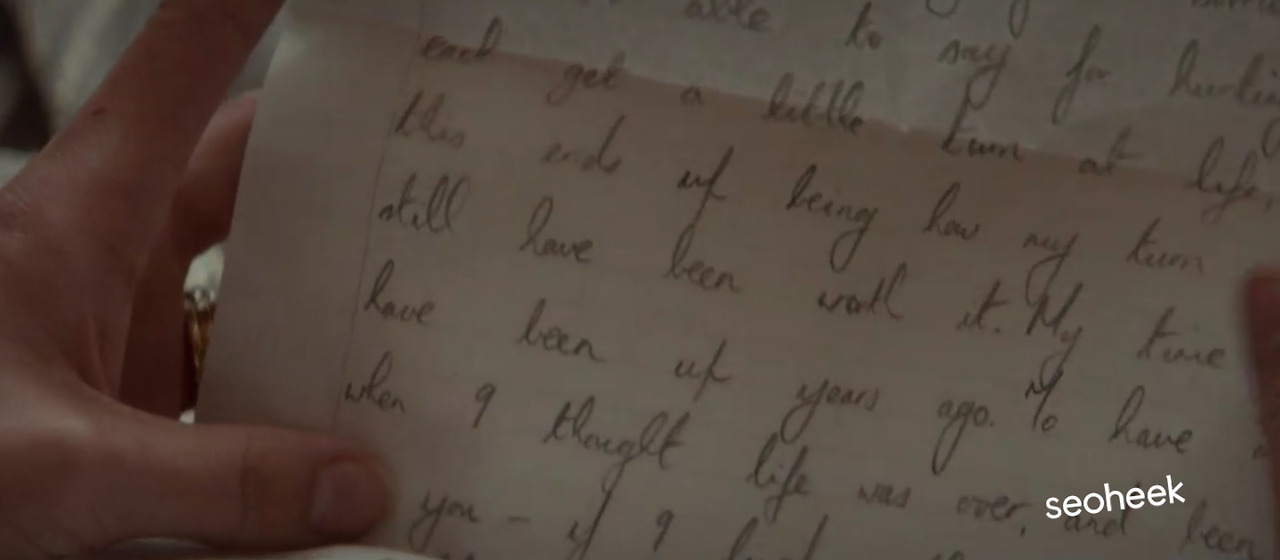 able to say for
each get a little turn at life,
this ends up being how my turn
still have been worth it. My time
have been up years ago. To have
when I thought life was over, and been
you - if I had
seoheek